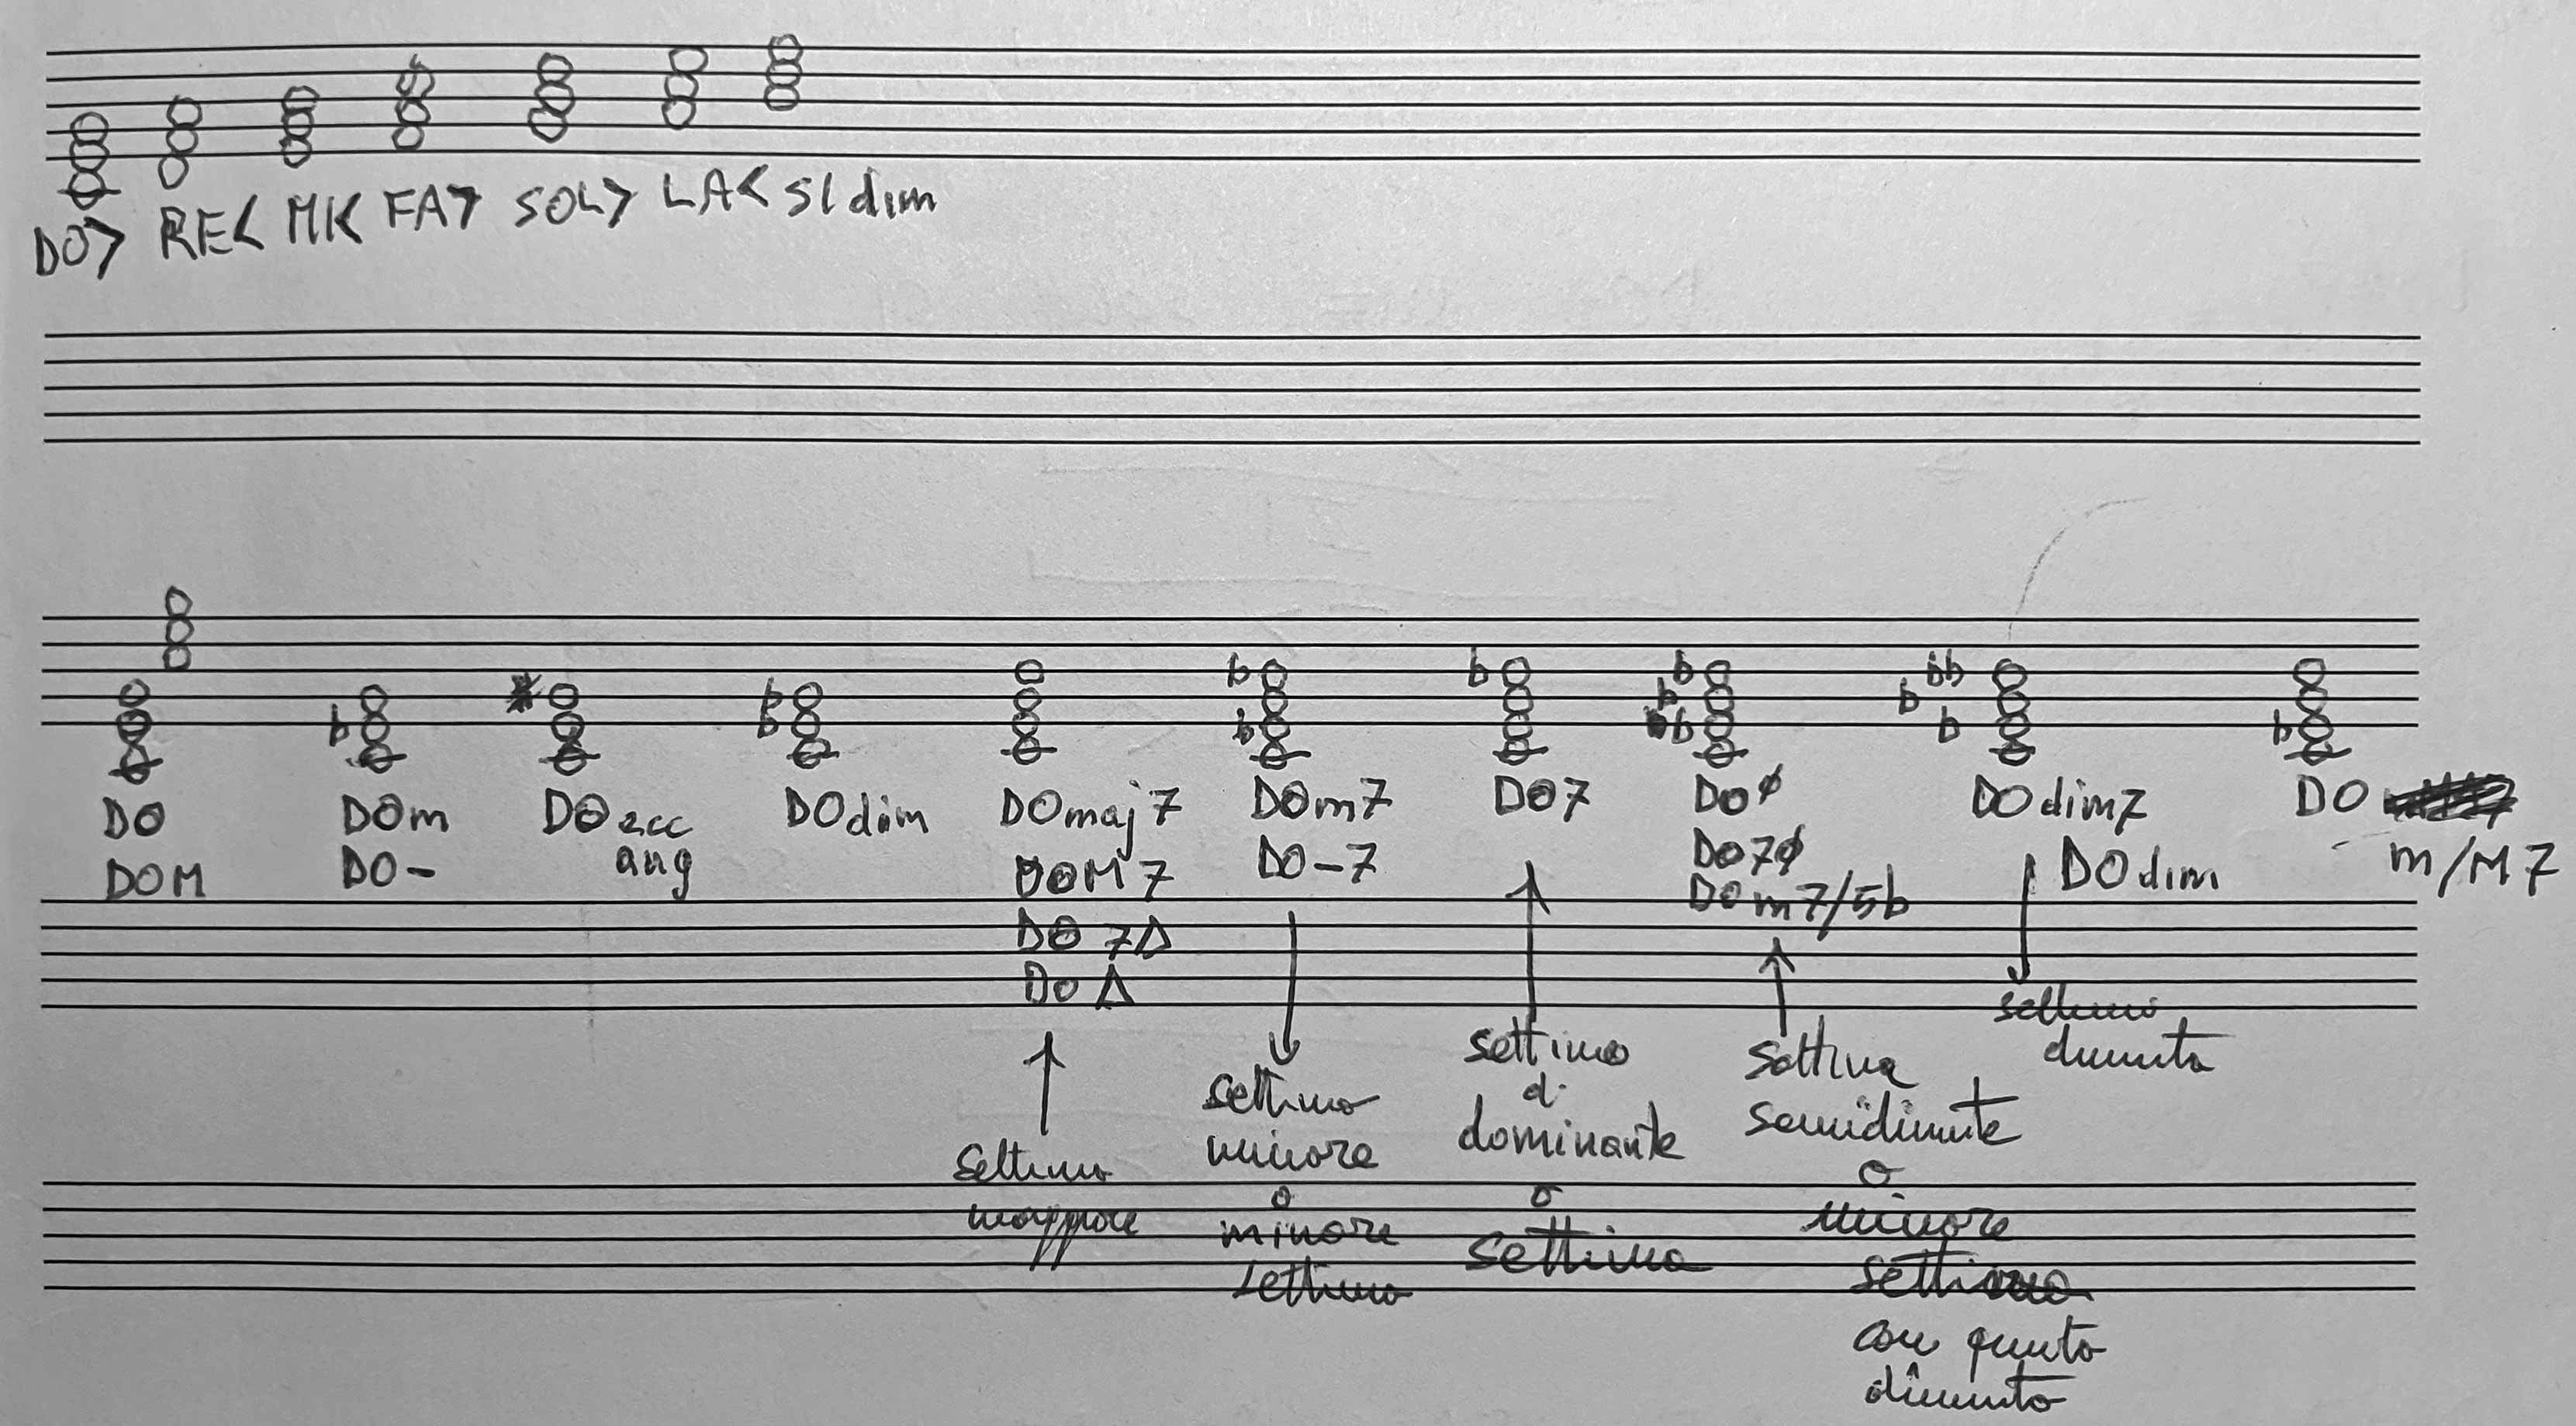 DO> RE< MI< FA> SOL> LA< SI dim
DO DOm DO ecc DO dim DO maj7 DOm7 DO7 DOø DO dim7 DO
DOM DO- aug DOM7 DO-7 DO7ø DO dim m/M7
DO 7Δ DOm7/5b
DO Δ
settima
maggiore
settima
minore
o
minore
settima
settima
di
dominante
o
settima
settima
semidiminuita
o
minore
settima
con quinta
diminuita
settima
diminuita